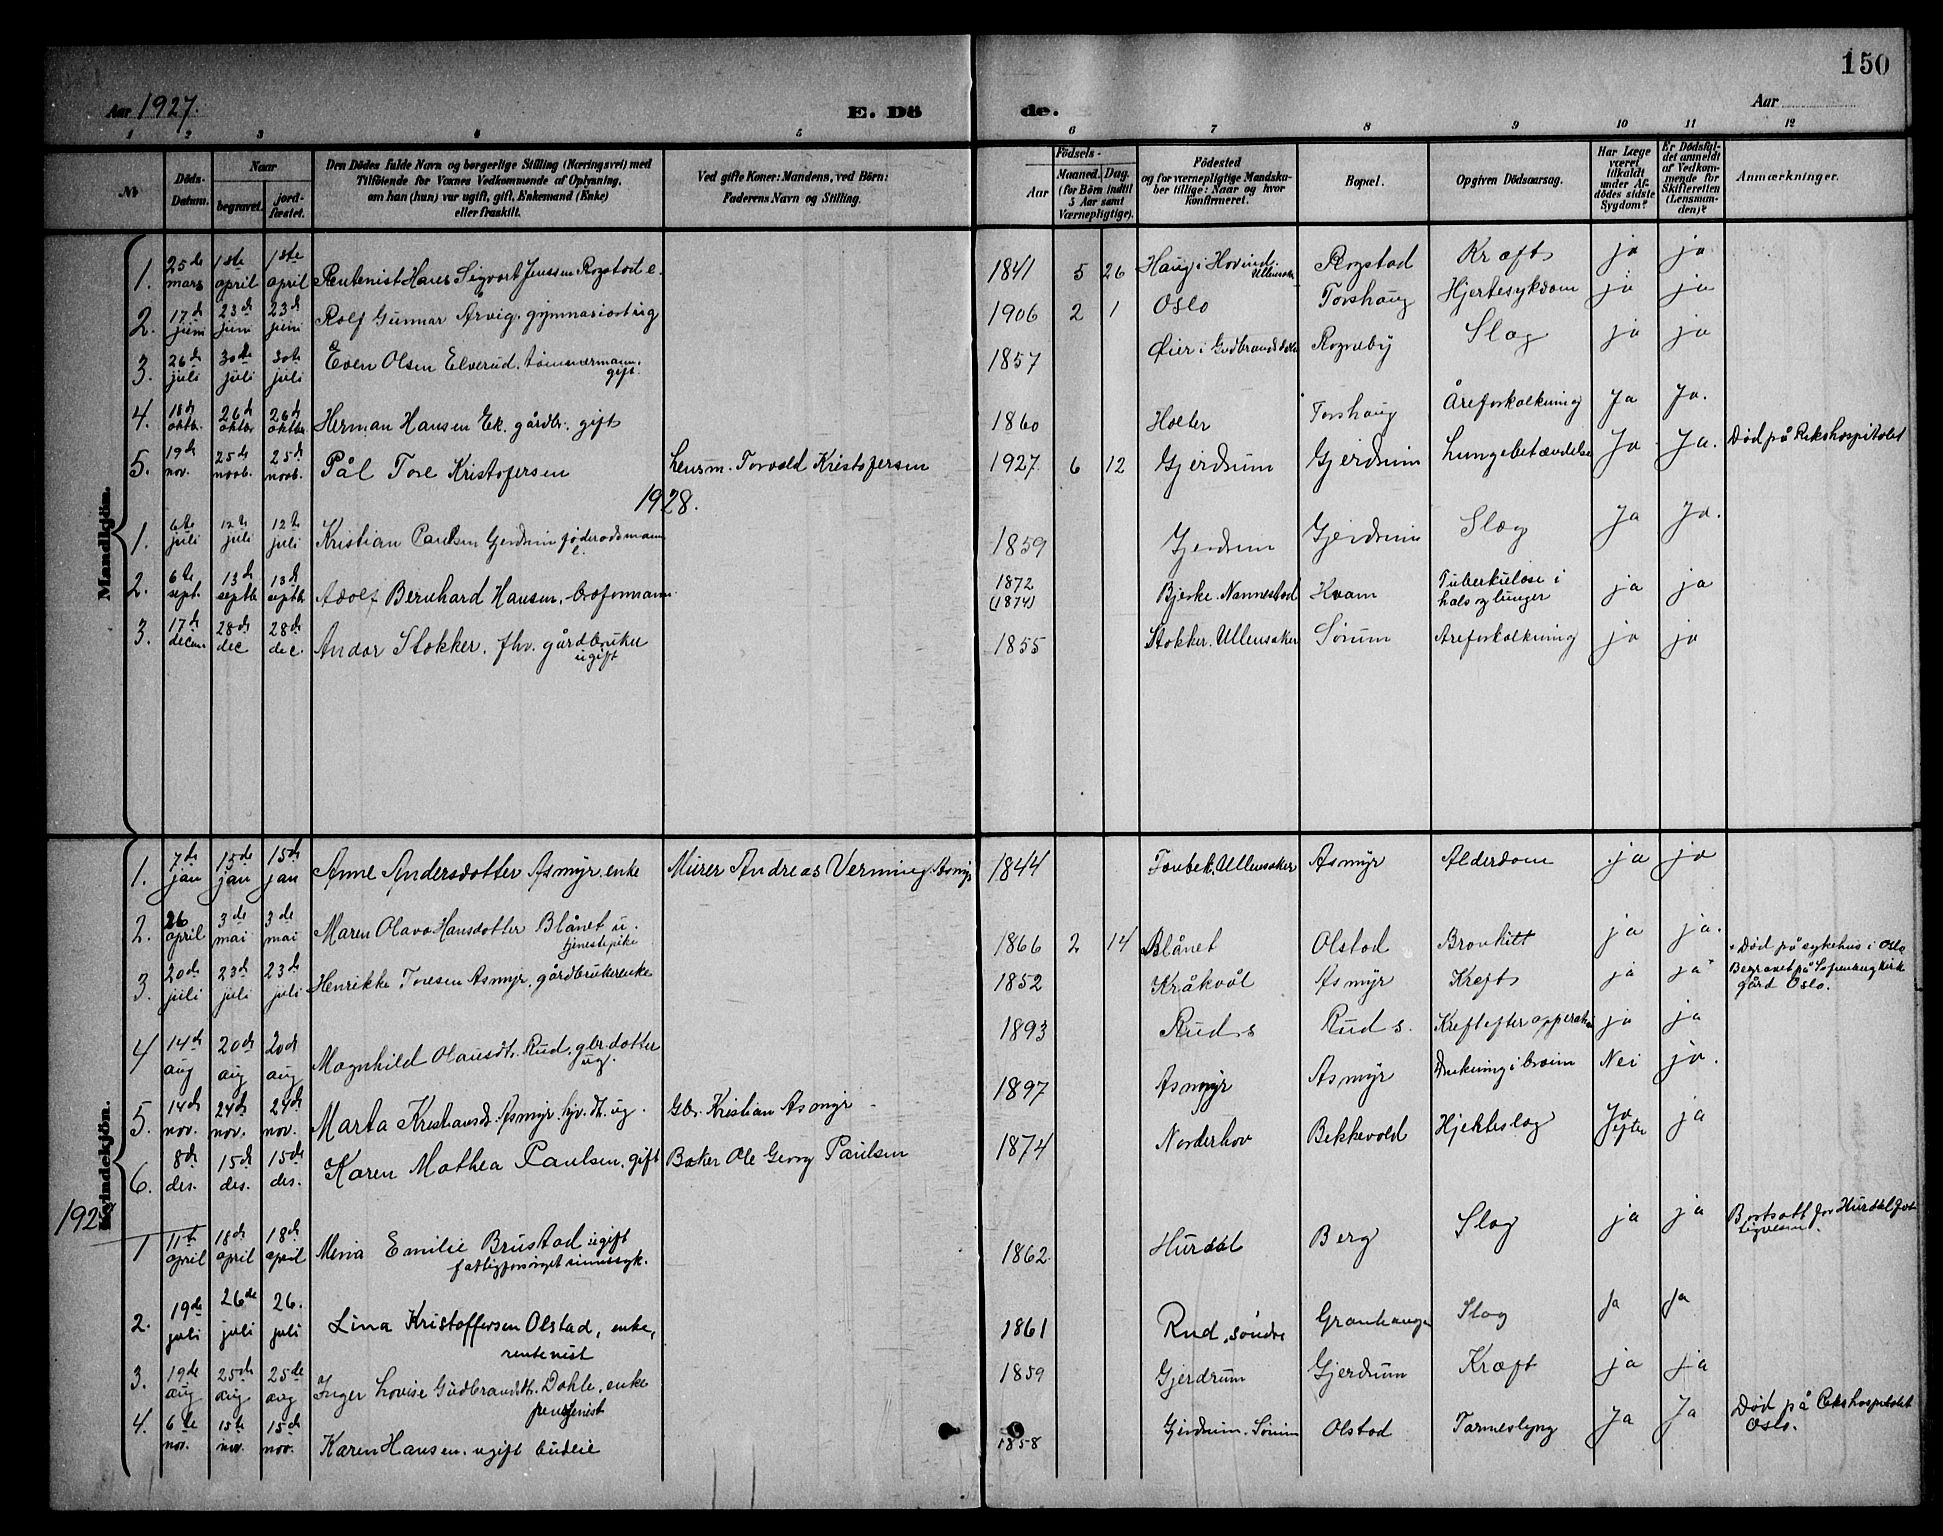 150
Aar 1927.
E. Dö
de.
Aar
1 2 3 4 5 6 7 8 9 10 11 12
№
Döds-Datum.
Naar
begravet.
jordfæstet.
Den Dödes fulde Navn og borgerlige Stilling (Næringsvei) med
Tilföiende for Voxnes Vedkommende af Oplysning,
om han (hun) var ugift, gift, Enkemand (Enke)
eller fraskilt.
Ved gifte Koner: Mandens, ved Börn:
Faderens Navn og Stilling.
Födsels-
Aar
Maaned. Dag.
(for Börn indtil
5 Aar samt
Værnepligtige).
Födested
og for værnepligtige Mandska-
ber tillige: Naar og hvor
konfirmeret.
Bopæl.
Opgiven Dödsaarsag.
Har Læge
været
tilkaldt
under Af-
dödes sidste
Sygdom?
Er Dödsfal-
det anmeldt
af Vedkom-
mende for
Skifteretten
(Lensman-
den)?
Anmærkninger.
Mandkjön.
1. 25de mars 1ste april 1ste april Rentenist Hans Sigvart Jenssen Rogstad e. 1841 5 26 Haug i Hovind. Ullensak. Rogstad Kræft ja ja
2. 17d juni 23d juni 23d juni Rolf Gunnar Arvig. gymnasiast ug 1906 2 1 Oslo Torshaug Hjertesykdom ja ja
3. 26d juli 30te juli 30te juli Even Olsen Elverud. tømmermann. gift. 1857 Øier i Gudbrandsdalen Rogneby Slag ja ja
4. 18d oktbr. 26d oktbr 26d oktbr Herman Hansen Ek. gårdbr. gift 1860 Holter Torshaug Åreforkalkning Ja Ja.
5. 19d nov. 25d novb. 25d novb. Pål Tore Kristofersen Lensm. Torvald Kristofersen 1927 6 12 Gjerdrum Gjerdrum Lungebetændelse Ja Ja. Død på Rikshospitalet
1928.
1. 6te juli 12te juli 12te juli Kristian Paulsen Gjerdrum føderådsmann e. 1859 Gjerdrum Gjerdrum Slag Ja Ja.
2. 6te sept. 13d septbr 13d septbr Adolf Bernhard Hansen, 1872 (1874) Bjerke. Nannestad Kvam Tuberkulose i hals og lunger ja ja
3. 17d decem 28d dec 28d dec. Andor Stokker. fhv. gårdbruker ugift 1855 Stokker. Ullensaker Sørum Areforkalkning ja ja
Kvindekjön.
1. 7de jan 15de jan 15d jan Anne Andersdotter Asmyr. enke Murer Andreas Verming Asmyr 1844 Ullensaker Asmyr Alderdom ja ja
2. 26 april 3de mai 3de mai Maren Olava Hansdotter Blånet u. tjenestepike 1866 2 14 Blånet Olstad Bronkitt ja ja. Død på sykehus i Oslo
3. 20d juli 23d juli 23d juli Henrikke Toresen Asmyr, gårdbrukerenke 1852 Kråkvål Asmyr Kreft ja ja Begravet på Sofienberg kirke gård Oslo.
4 14d aug 20d aug 20d aug Magnhild Olausdt. Rud, gbr. dotter ug. 1893 Rud s Rud s. Kreft efter opperation ja ja
5. 14d nov. 24d nov. 24d nov. Marta Kristiansdt. Asmyr. dt. ug. Gbr. Kristian Asmyr 1897 Asmyr Asmyr Drukning i brøin Nei ja.
6. 8d des. 15d des. 15d des. Karen Mathea Paulsen, gift Baker Ole Georg Paulsen 1874 Norderhov Bekkevold Hjerteslag Ja efter ja
192
1 11t april 18d april 18d april Mina Emilie Brustad ugift fattigforsørget sinnssyk. 1862 Hurdal Berg Slag ja ja Bortsatt for Hurdal
2. 19de juli 26de juli 26. juli Lina Kristoffersen Olstad, enke, rentenist 1861 Rud, søndre Granhaugen Slag Ja Ja
3. 19de aug 25de aug 25de aug Inger Lovise Gudbrandsdt. Dahle, enke pensjonist 1859 Gjerdrum Gjerdrum Kræft ja ja
4. 6te nov. 15te nov. 15d nov. Karen Hansen. ugift budeie 1858 Gjerdrum. Sørum Olstad Tarmeslyng Ja Ja Død på Rikshospitalet Oslo.